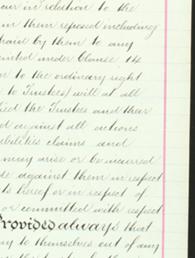 our in relation to the
in them reposed including
them by them to any
under Clause 14
to the ordinary right
to Trustees) will at all
the Trustees and their
against all actions
liabilities claims and
may arise or be incurred
against them in respect
hereof or in respect of
or committed with respect
Provided always that
to themselves out of any